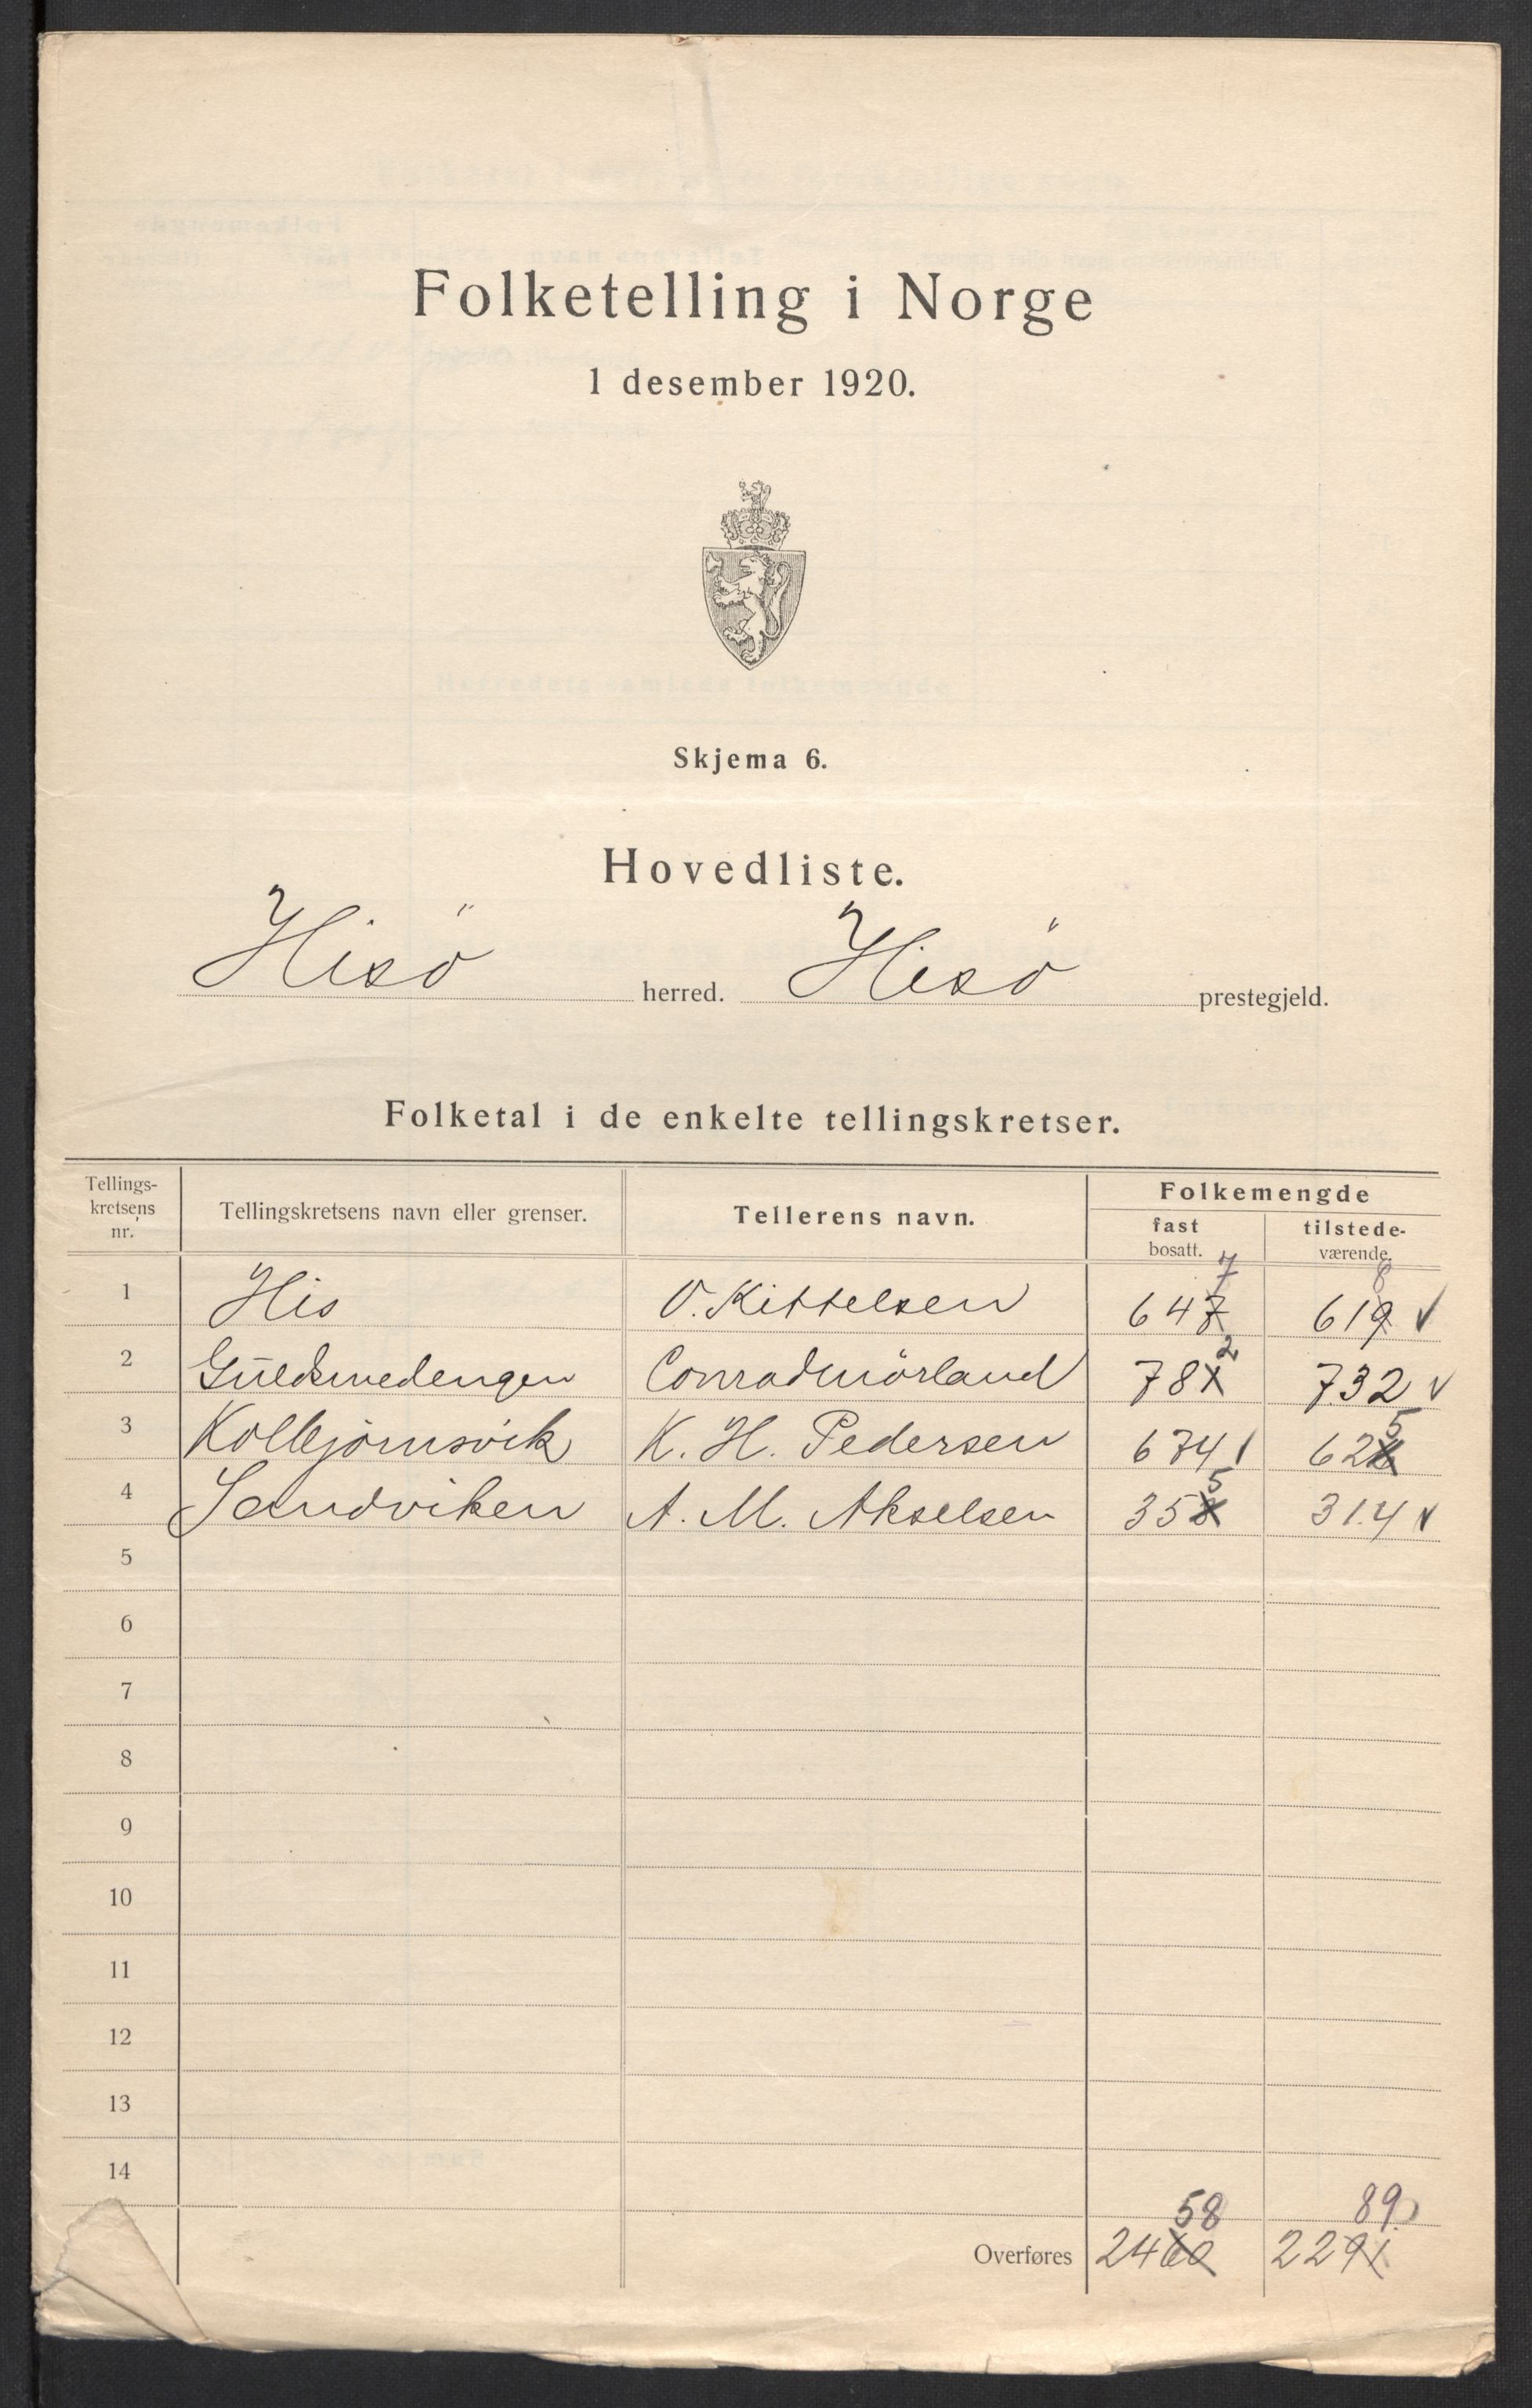 Folketelling i Norge
1 desember 1920.
Skjema 6.
Hovedliste.
Hisö herred. Hisö prestegjeld.
Folketal i de enkelte tellingskretser.
Tellings-kretsens nr. Tellingskretsens navn eller grenser. Tellerens navn. Folkemengde
fast bosatt. tilstede-værende.
7 8
1 His O. Kittelsen 647 619 ✓
2
2 Guldsmedengen Conrad Mörland 781 732 ✓
5
3 Kolbjörnsvik K. H. Pedersen 674 626
5
4 Sandviken A. M. Akselsen 358 314 ✓
5
6
7
8
9
10
11
12
13
14
58 89
Overføres 2460 2291